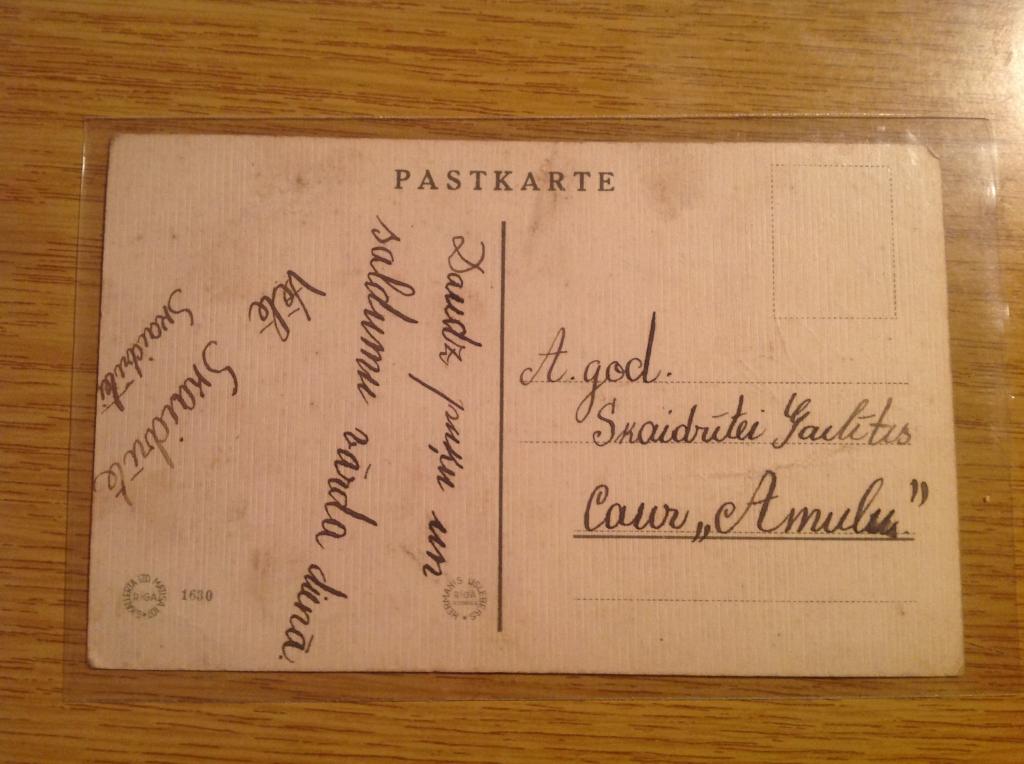 PASTKARTE
Daudz puķu un
saldumu vārda dienā.
Vēlē
Skaidrīte
Skaidrīte
A. god.
Skaidrītei Gailītis
Caur „Amulu”
RĪGA
1630
HERMANIS
RĪGA